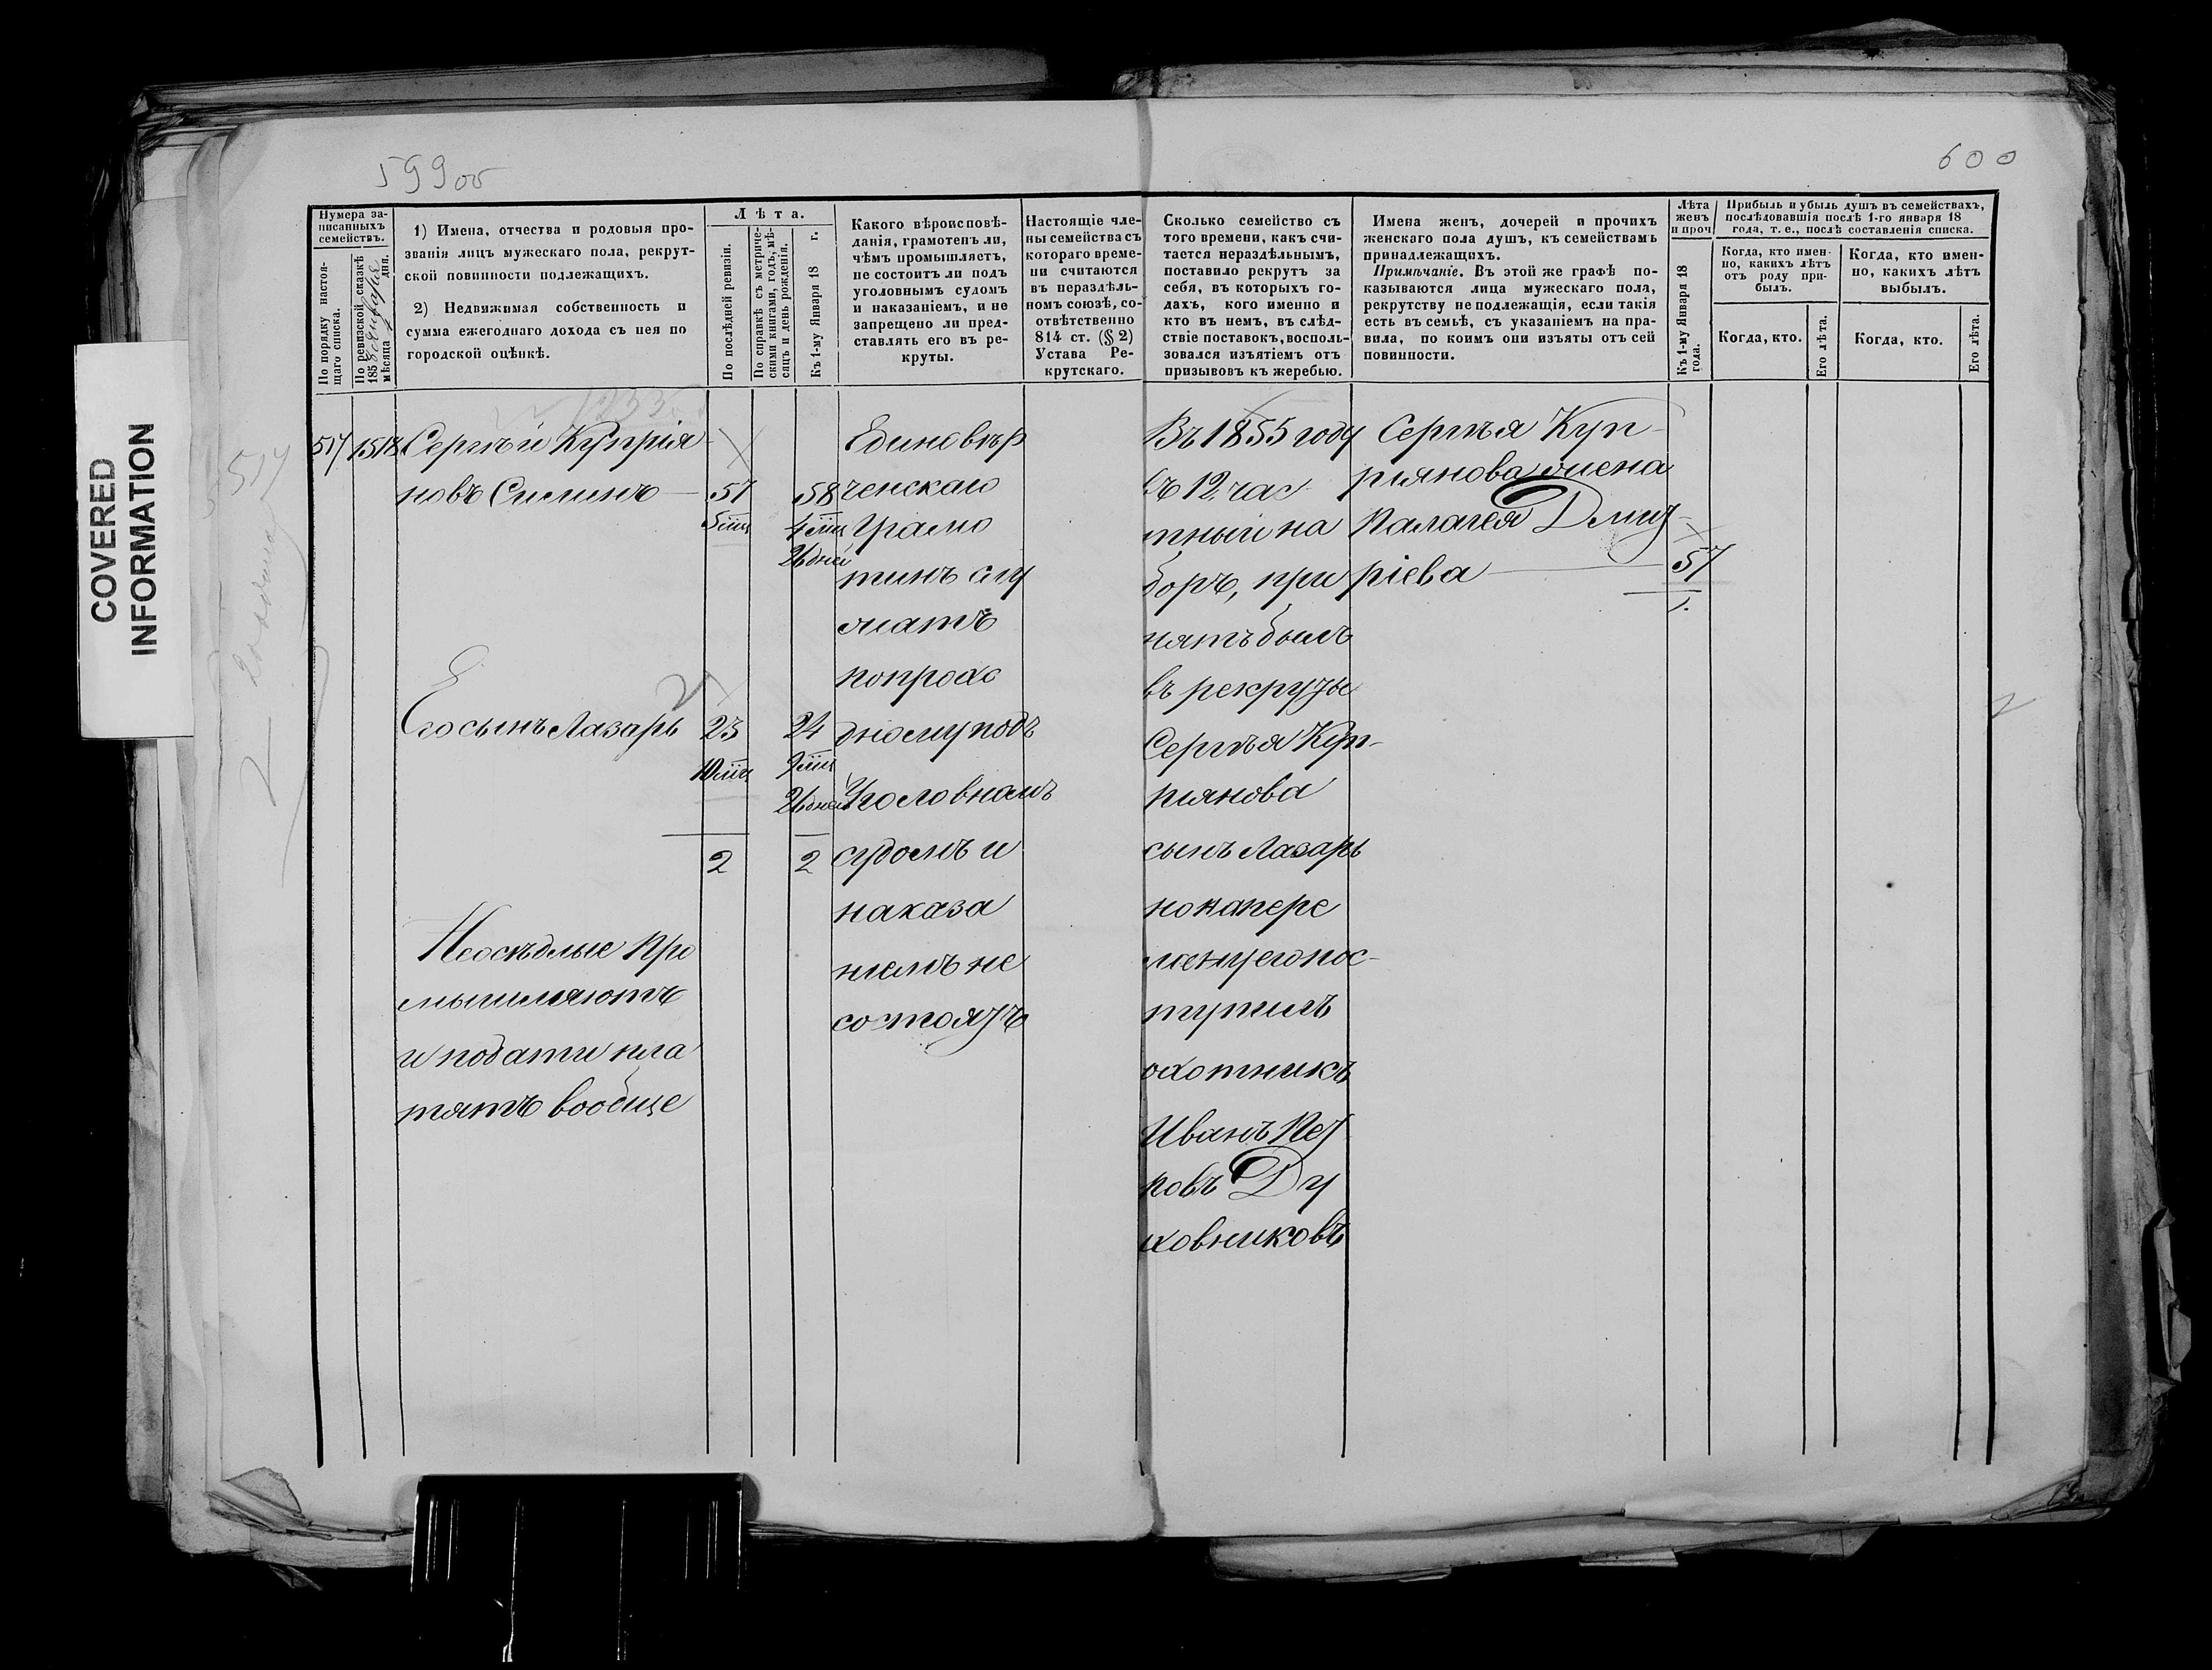 599об
600
COVERED
INFORMATION
Нумера за-
писанныхъ
семействъ.
По порядку настоя-
щаго списка.
По ревизской сказкѣ
185 мѣсяца дня.
1) Имена, отчества и родовыя про-
званія лицъ мужескаго пола, рекрут-
ской повинности подлежащихъ.
2) Недвижимая собственность и
сумма ежегоднаго дохода съ нея по
городской оцѣнкѣ.
Лѣта.
По послѣдней ревизіи.
По справкѣ съ метриче-
скими книгами, годъ, мѣ-
сяцъ и день рожденія.
Къ 1-му Января 18 г.
Какого вѣроисповѣ-
данія, грамотенъ ли,
чѣмъ промышляетъ,
не состоитъ ли подъ
уголовнымъ судомъ
и наказаніемъ, и не
запрещено ли пред-
ставлять его въ ре-
круты.
Настоящіе чле-
ны семейства съ
котораго време-
ни считаются
въ нераздѣль-
номъ союзѣ, со-
отвѣтственно
814 ст. (§ 2)
Устава Ре-
крутскаго.
Сколько семейство съ
того времени, какъ счи-
тается нераздѣльнымъ,
поставило рекрутъ за
себя, въ которыхъ го-
дахъ, кого именно и
кто въ немъ, въ слѣд-
ствіе поставокъ, восполь-
зовался изъятіемъ отъ
призывовъ къ жеребью.
Имена женъ, дочерей и прочихъ
женскаго пола душъ, къ семействамъ
принадлежащихъ.
Примѣчаніе. Въ этой же графѣ по-
казываются лица мужескаго пола,
рекрутству не подлежащія, если такія
есть въ семьѣ, съ указаніемъ на пра-
вила, по коимъ они изъяты отъ сей
повинности.
Лѣта
женъ
и проч
Къ 1-му Января 18
года.
Прибыль и убыль душъ въ семействахъ,
послѣдовавшія послѣ 1-го января 18
года, т. е., послѣ составленія списка.
Когда, кто имен-
но, какихъ лѣтъ
отъ роду при-
былъ.
Когда, кто имен-
но, какихъ лѣтъ
выбылъ.
Когда, кто.
Его лѣта.
Когда, кто.
Его лѣта.
517
517 1518 Сергѣй Купріа
новъ Силинъ 57 58
5 мц 4 мц
26 дней
Его сынъ Лазарь 23 24
10 мц 9 мц
26 дней
2 2
Неосѣдлые про
мышляютъ
и подати пла
тятъ вообще
Единовѣр
ческаго
Грамо
тинъ слу
житъ
попрохо
дному подъ
Уголовнамъ
судомъ и
наказа
ніемъ не
состоятъ
Въ 1855 году
въ 12 час
тный на
боръ, при
нятъ былъ
въ рекруты
Сергѣя Куп-
ріянова
сынъ Лазарь
но напере
мену его пос-
тупилъ
охотникъ
Иванъ Пет
ровъ Ду
ховниковъ
Сергѣя Куп-
ріянова жена
Палагея Дмит-
ріева 57
1.